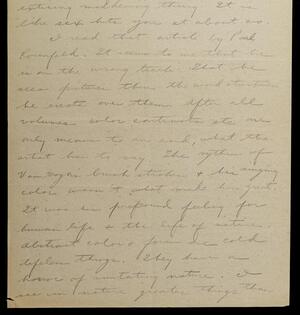 maddening thing. It is
like sex hits you at about 20.
I read that article by Paul
Rosenfeld. It seems to me that he
is on the wrong track. That he
sees pictures thru the
he erects over them. After all
volumes color continuity etc are
only means to an end, what the
artist has to say. The rythm of
Van Gogh's brush strokes & his singing
color wasn't what made him great.
It was his profound feeling for
human life & the life of nature.
Abstract color & form are cold
lifeless things. They have a
horror of imitating nature. I
see in nature greater things than